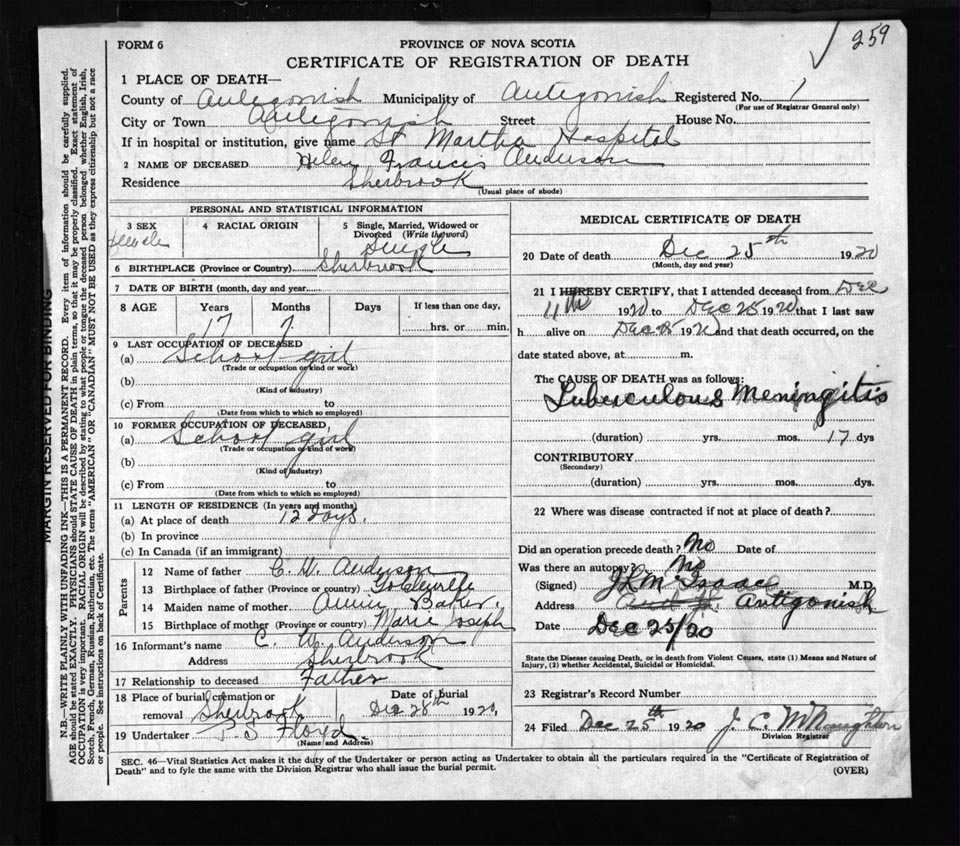 259
FORM 6
PROVINCE OF NOVA SCOTIA
CERTIFICATE OF REGISTRATION OF DEATH
1 PLACE OF DEATH—
County of Antigonish Municipality of Antigonish Registered No. 1
(For use of Registrar General only)
City or Town Antigonish Street House No.
If in hospital or institution, give name St Martha Hospital
2 NAME OF DECEASED Helen Francis Anderson
Residence Sherbrook
(Usual place of abode)
PERSONAL AND STATISTICAL INFORMATION
3 SEX 4 RACIAL ORIGIN 5 Single, Married, Widowed or
Divorced (Write the word)
female Single
6 BIRTHPLACE (Province or Country) Sherbrook
7 DATE OF BIRTH (month, day and year)
8 AGE Years Months Days If less than one day,
17 7 hrs. or min.
9 LAST OCCUPATION OF DECEASED
(a) School girl
(Trade or occupation or kind or work)
(b)
(Kind of industry)
(c) From to
(Date from which to which so employed)
10 FORMER OCCUPATION OF DECEASED,
(a) School girl
(Trade or occupation or kind of work)
(b)
(Kind of industry)
(c) From to
(Date from which to which so employed)
11 LENGTH OF RESIDENCE (In years and months)
(a) At place of death 12 days.
(b) In province
(c) In Canada (if an immigrant)
Parents
12 Name of father C. W. Anderson
13 Birthplace of father (Province or country) Goldenville
14 Maiden name of mother Annie Baker,
15 Birthplace of mother (Province or country) Marie Joseph
16 Informant's name C. W. Anderson
Address Sherbrook
17 Relationship to deceased Father
18 Place of burial, cremation or Date of burial
removal Sherbrook Dec 28th 1920,
19 Undertaker P. S Floyd.
(Name and Address)
MEDICAL CERTIFICATE OF DEATH
20 Date of death Dec 25th 1920
(Month, day and year)
21 I HEREBY CERTIFY, that I attended deceased from Dec
11th 1920 to Dec 25 1920 that I last saw
h alive on Dec 192 and that death occurred, on the
date stated above, at m.
The CAUSE OF DEATH was as follows:
Tuberculous Meningitis
(duration) yrs. mos. 17 dys
CONTRIBUTORY
(Secondary)
(duration) yrs. mos. dys.
22 Where was disease contracted if not at place of death?
Did an operation precede death? No Date of
Was there an autopsy? No
(Signed) McIsaac M.D.
Address Antigonish
Date Dec 25/20
State the Disease causing Death, or in death from Violent Causes, state (1) Means and Nature of
Injury, (2) whether Accidental, Suicidal or Homicidal.
23 Registrar's Record Number
24 Filed Dec 25th 1920 J. C. McNaughton
Division Registrar
SEC. 46—Vital Statistics Act makes it the duty of the Undertaker or person acting as Undertaker to obtain all the particulars required in the "Certificate of Registration of
Death" and to fyle the same with the Division Registrar who shall issue the burial permit.
(OVER)
MARGIN RESERVED FOR BINDING
N.B.—WRITE PLAINLY WITH UNFADING INK—THIS IS A PERMANENT RECORD. Every item of information should be carefully supplied.
AGE should be stated EXACTLY. PHYSICIANS should STATE CAUSE OF DEATH in plain terms, so that it may be properly classified. Exact statement of
OCCUPATION is very important. RACIAL ORIGIN will be described by stating to what people or tongue the deceased person belonged whether English, Irish,
Scotch, French, German, Russian, Ruthenian, etc. The terms "AMERICAN" OR "CANADIAN" MUST NOT BE USED as they express citizenship but not a race
or people. See instructions on back of Certificate.